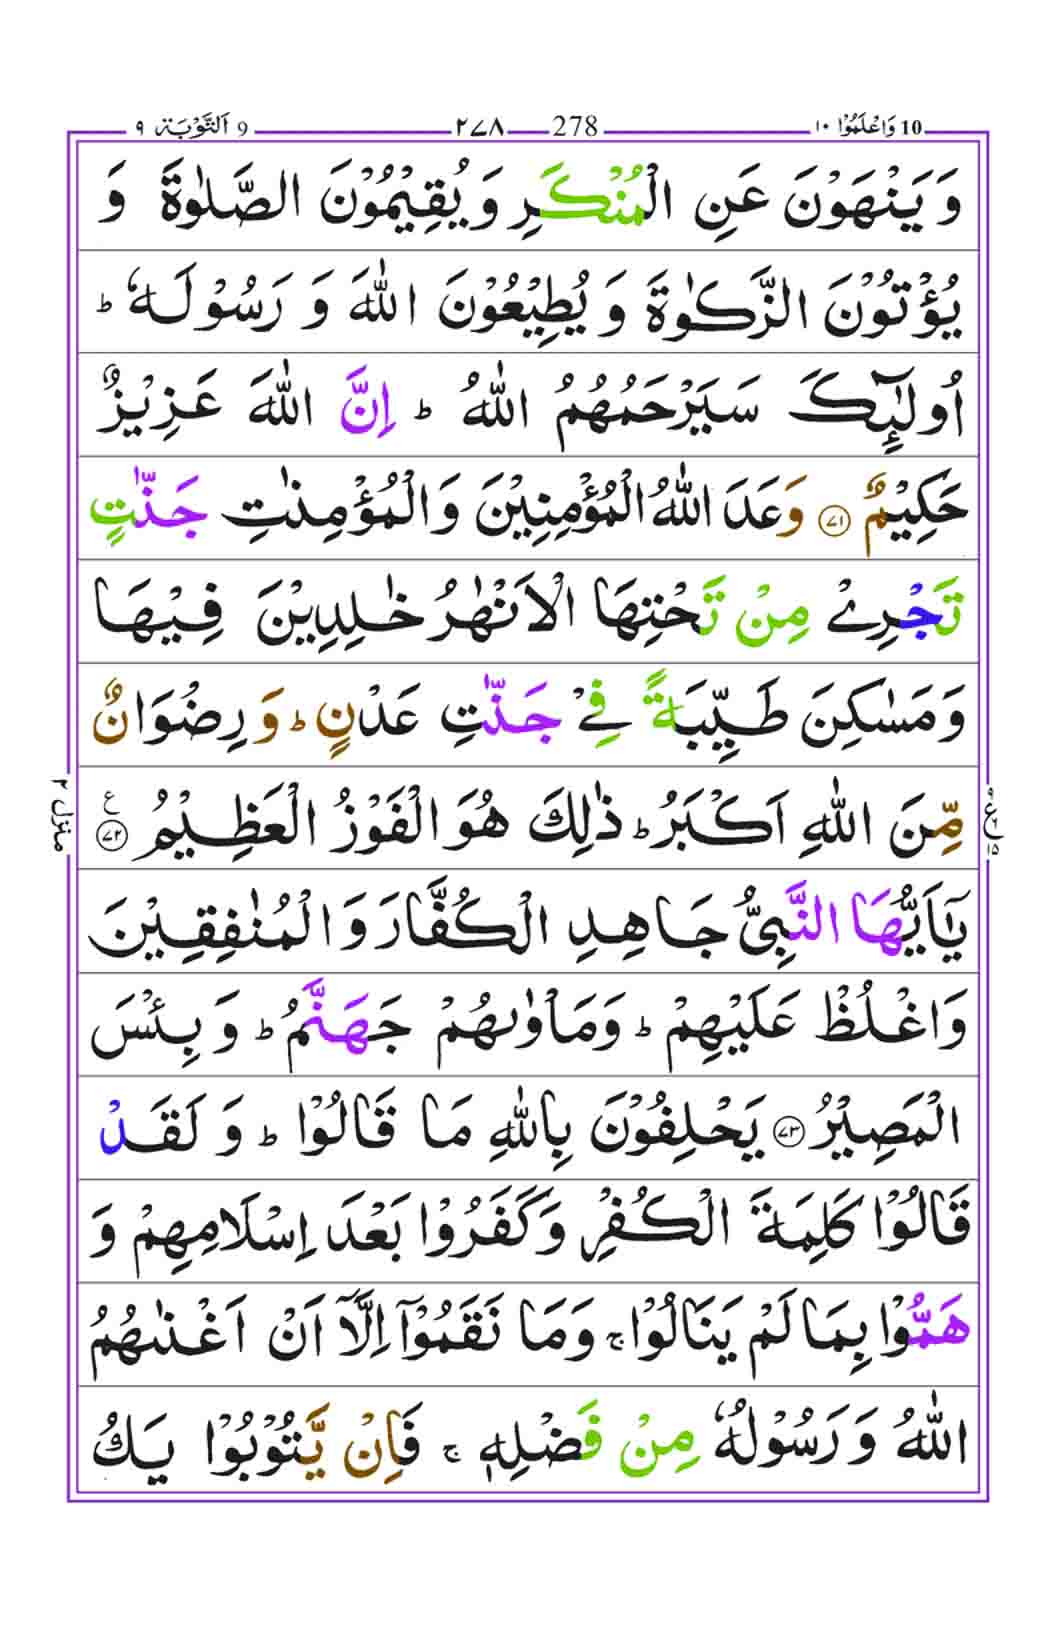 10 وَاعْلَمُوْا ١٠
278 ٢٧٨
9 اَلتَّوْبَة ٩
وَ يَنْهَوْنَ عَنِ الْمُنْكَرِ وَ يُقِيْمُوْنَ الصَّلٰوةَ وَ
يُؤْتُوْنَ الزَّكٰوةَ وَ يُطِيْعُوْنَ اللّٰهَ وَ رَسُوْلَهٗ ؕ
اُولٰٓئِكَ سَيَرْحَمُهُمُ اللّٰهُ ؕ اِنَّ اللّٰهَ عَزِيْزٌ
حَكِيْمٌ ٧١ وَعَدَ اللّٰهُ الْمُؤْمِنِيْنَ وَالْمُؤْمِنٰتِ جَنّٰتٍ
تَجْرِيْ مِنْ تَحْتِهَا الْاَنْهٰرُ خٰلِدِيْنَ فِيْهَا
وَمَسٰكِنَ طَيِّبَةً فِيْ جَنّٰتِ عَدْنٍ ؕ وَ رِضْوَانٌ
مِّنَ اللّٰهِ اَكْبَرُ ؕ ذٰلِكَ هُوَ الْفَوْزُ الْعَظِيْمُ ٧٢ ع
يٰۤاَيُّهَا النَّبِيُّ جَاهِدِ الْكُفَّارَ وَ الْمُنٰفِقِيْنَ
وَاغْلُظْ عَلَيْهِمْ ؕ وَمَاْوٰىهُمْ جَهَنَّمُ ؕ وَ بِئْسَ
الْمَصِيْرُ ٧٣ يَحْلِفُوْنَ بِاللّٰهِ مَا قَالُوْا ؕ وَ لَقَدْ
قَالُوْا كَلِمَةَ الْكُفْرِ وَكَفَرُوْا بَعْدَ اِسْلَامِهِمْ وَ
هَمُّوْا بِمَا لَمْ يَنَالُوْا ۚ وَمَا نَقَمُوْۤا اِلَّاۤ اَنْ اَغْنٰىهُمُ
اللّٰهُ وَ رَسُوْلُهٗ مِنْ فَضْلِهٖ ۚ فَاِنْ يَّتُوْبُوْا يَكُ
منزل ٢
ع
١٥